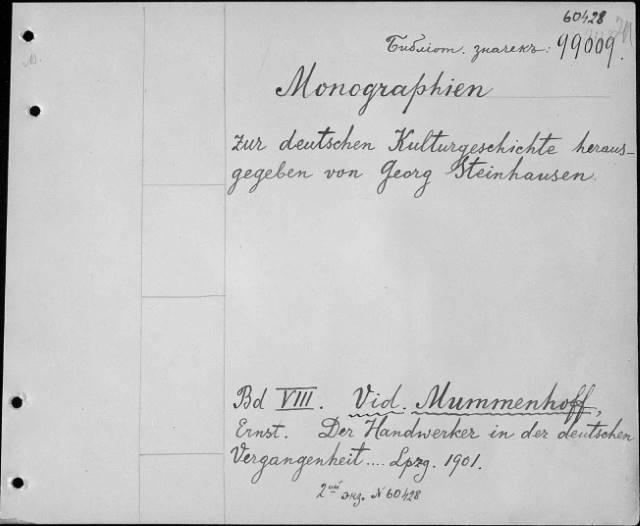 60428
Библіот. значекъ: 99009.
Monographien
zur deutschen Kulturgeschichte heraus-
gegeben von Georg Steinhausen.
Bd VIII. Vid. Mummenhoff,
Ernst. Der Handwerker in der deutschen
Vergangenheit.... Lpzg. 1901.
2ый экз. N 60428